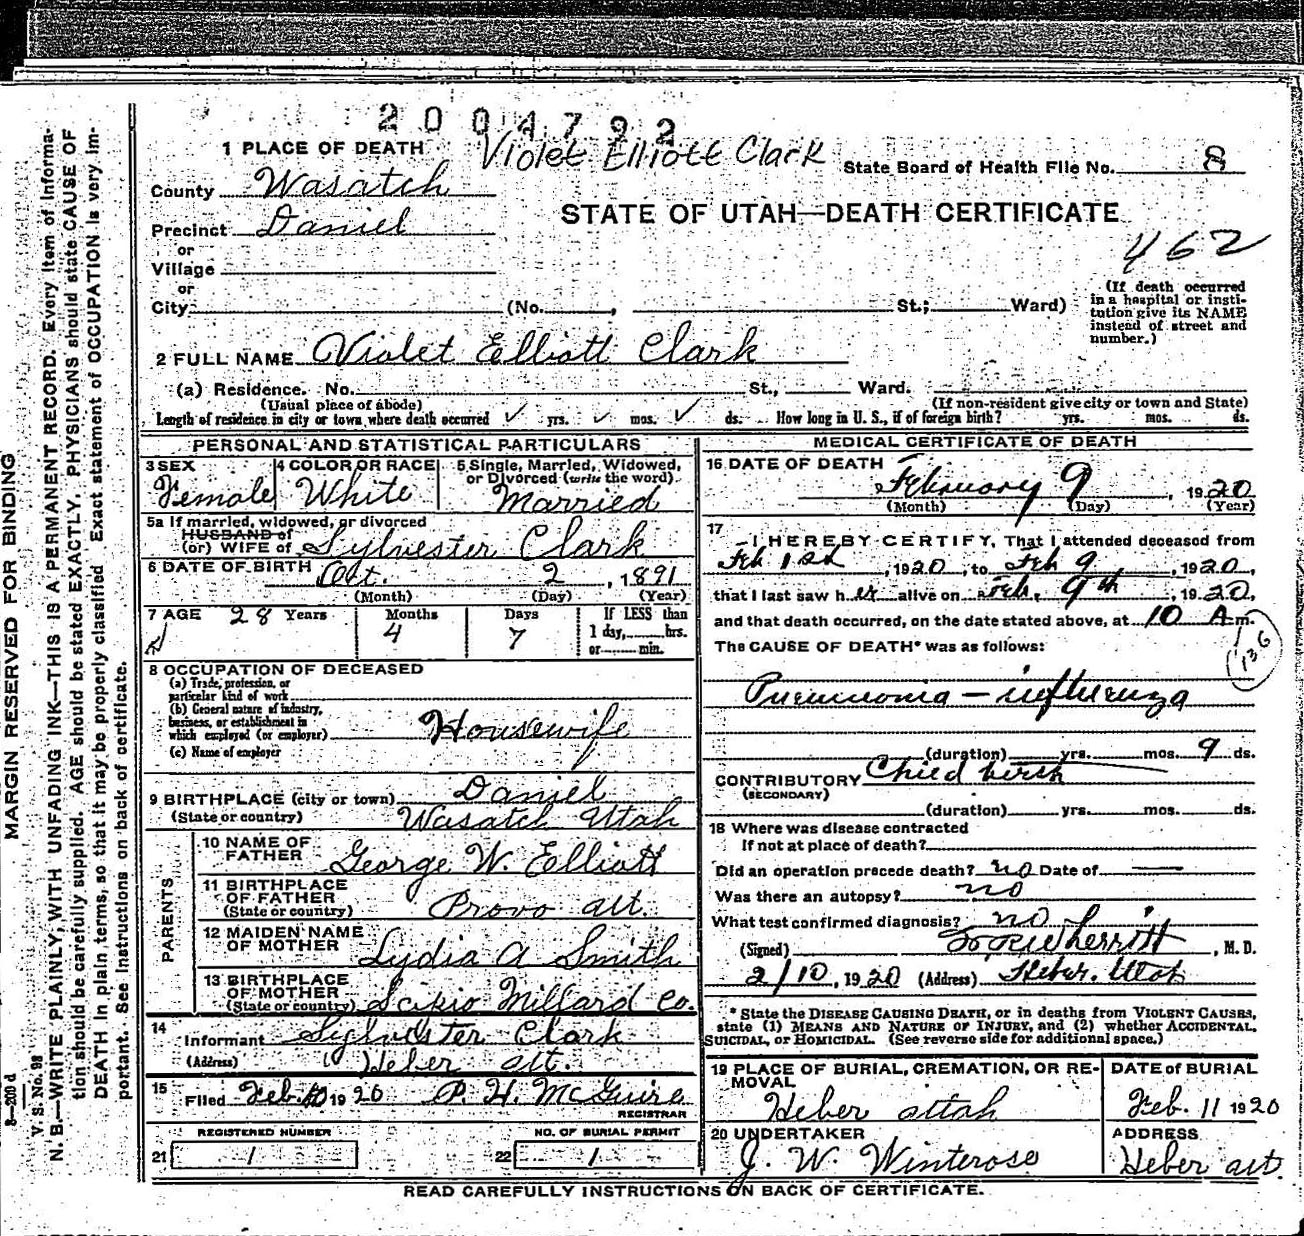 2004792
1 PLACE OF DEATH Violet Elliott Clark State Board of Health File No. 8
County Wasatch
STATE OF UTAH—DEATH CERTIFICATE
Precinct Daniel
462
or
Village
or
City (No. , St.; Ward)
(If death occurred in a hospital or insti-
tution give its NAME
instead of street and
number.)
2 FULL NAME Violet Elliott Clark
(a) Residence. No. St., Ward.
(Usual place of abode) (If non-resident give city or town and State)
Length of residence in city or town where death occurred ✓ yrs. ✓ mos. ✓ ds. How long in U. S., if of foreign birth? yrs. mos. ds.
PERSONAL AND STATISTICAL PARTICULARS
3 SEX Female
4 COLOR OR RACE White
5 Single, Married, Widowed,
or Divorced (write the word)
Married
5a If married, widowed, or divorced
HUSBAND of
(or) WIFE of Sylvester Clark
6 DATE OF BIRTH Oct. 2, 1891
(Month) (Day) (Year)
7 AGE 28 Years Months 4 Days 7 If LESS than
1 day, hrs.
or min.
8 OCCUPATION OF DECEASED
(a) Trade, profession, or
particular kind of work
(b) General nature of industry,
business, or establishment in
which employed (or employer) Housewife
(c) Name of employer
9 BIRTHPLACE (city or town) Daniel
(State or country) Wasatch Utah
PARENTS
10 NAME OF
FATHER George W. Elliott
11 BIRTHPLACE
OF FATHER
(State or country) Provo Ut.
12 MAIDEN NAME
OF MOTHER Lydia A Smith
13 BIRTHPLACE
OF MOTHER
(State or country) Scipio Millard Co.
14 Informant Sylvester Clark
(Address) Heber Ut.
15 Filed Feb. 10 1920 P. H. McGuire
REGISTRAR
REGISTERED NUMBER NO. OF BURIAL PERMIT
21 1 22 1
MEDICAL CERTIFICATE OF DEATH
16 DATE OF DEATH
February 9, 1920
(Month) (Day) (Year)
17
I HEREBY CERTIFY, That I attended deceased from
Feb 1st, 1920, to Feb 9, 1920,
that I last saw her alive on Feb. 9th, 1920,
and that death occurred, on the date stated above, at 10 A m.
The CAUSE OF DEATH* was as follows:
136
Pneumonia - influenza
(duration) yrs. mos. 9 ds.
CONTRIBUTORY Child birth
(SECONDARY)
(duration) yrs. mos. ds.
18 Where was disease contracted
If not at place of death?
Did an operation precede death? no Date of —
Was there an autopsy? no
What test confirmed diagnosis? no
(Signed) Wherritt, M. D.
2/10, 1920 (Address) Heber. Utah
* State the DISEASE CAUSING DEATH, or in deaths from VIOLENT CAUSES,
state (1) MEANS AND NATURE OF INJURY, and (2) whether ACCIDENTAL,
SUICIDAL, or HOMICIDAL. (See reverse side for additional space.)
19 PLACE OF BURIAL, CREMATION, OR RE-
MOVAL
Heber Utah
DATE of BURIAL
Feb. 11 1920
20 UNDERTAKER
J. W. Winterose
ADDRESS
Heber Ut.
READ CAREFULLY INSTRUCTIONS ON BACK OF CERTIFICATE.
MARGIN RESERVED FOR BINDING
V. S. No. 98
N. B.—WRITE PLAINLY, WITH UNFADING INK—THIS IS A PERMANENT RECORD. Every item of informa-
tion should be carefully supplied. AGE should be stated EXACTLY. PHYSICIANS should state CAUSE OF
DEATH in plain terms, so that it may be properly classified. Exact statement of OCCUPATION is very im-
portant. See instructions on back of certificate.